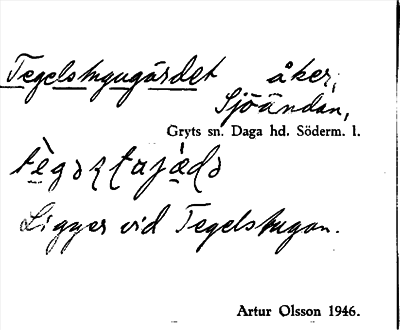 Tegelstugugärdet åker,
Sjöändan,
Gryts sn. Daga hd. Söderm. l.
Ligger vid Tegelstugan.
Artur Olsson 1946.